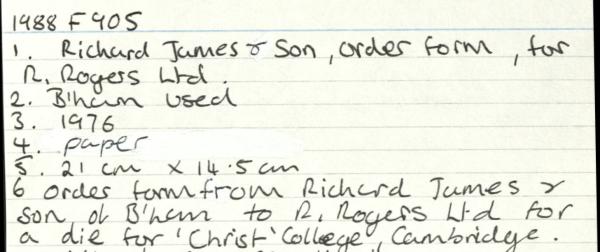 1988 F 905
1. Richard James & Son, order form, for
R. Rogers Ltd.
2. B'ham used
3. 1976
4. paper
5. 21 cm x 14.5 cm
6 order form from Richard James &
son, of B'ham to R. Rogers Ltd for
a die for 'Christ' College, Cambridge.